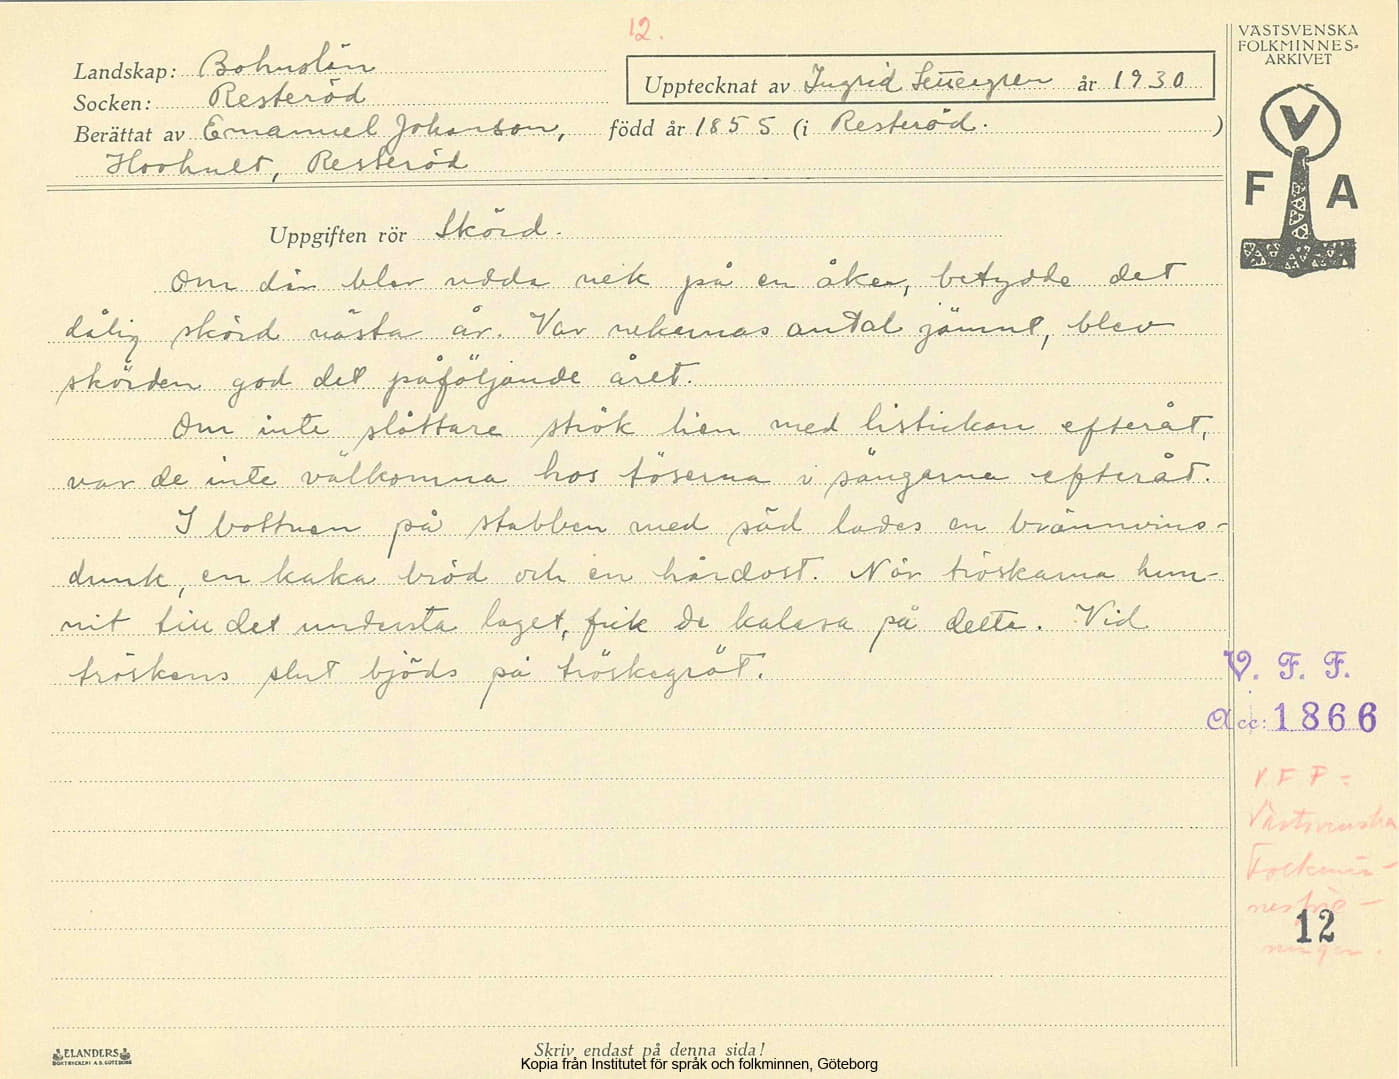 12.
VÄSTSVENSKA
FOLKMINNES-
ARKIVET
V
F A
Landskap: Bohuslän
Socken: Resteröd
Upptecknat av Ingrid år 1930
Berättat av Emanuel Johanson, född år 1855 (i Resteröd. )
Resteröd
Uppgiften rör Skörd.
Om där blev udda nek på en åker, betydde det
dålig skörd nästa år. Var nekernas antal jämnt, blev
skörden god det påföljande året.
Om inte slåttare strök lien med listickan efteråt,
var de inte välkomna hos töserna i sängarna efteråt.
I bottnen på stabben med säd lades en brännvins-
dunk, en kaka bröd och en hårdost. När tröskarna hun-
nit till det understa laget, fick de kalasa på detta. Vid
tröskens slut bjöds på tröskegröt.
V. F. F.
Acc: 1866
V. F. F =
Västsvenska
Folkmin-
nesföre-
ningen.
12
ELANDERS
BOKTRYCKERI A.B. GÖTEBORG
Skriv endast på denna sida!
Kopia från Institutet för språk och folkminnen, Göteborg